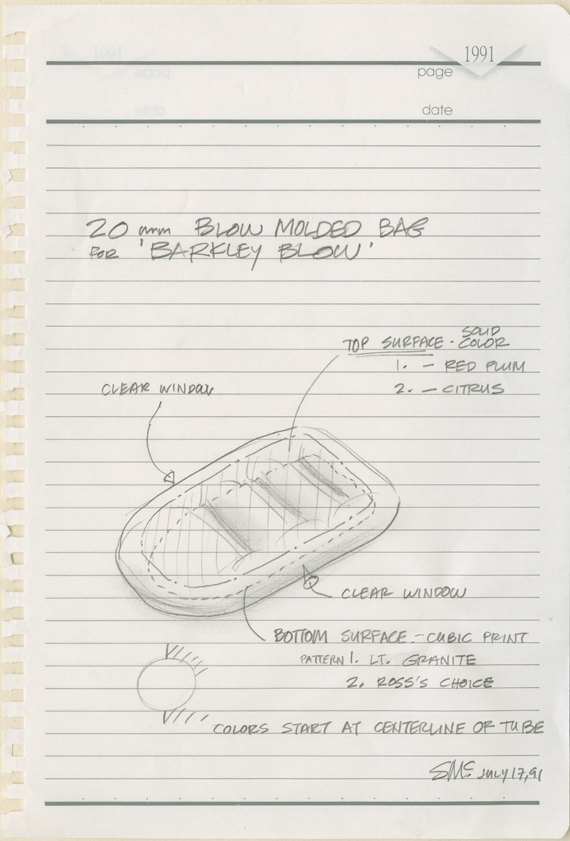 1991
page
date
20 mm BLOW MOLDED BAG
FOR 'BARKLEY BLOW'
TOP SURFACE - SOLID COLOR
1. - RED PLUM
2. - CITRUS
CLEAR WINDOW
CLEAR WINDOW
BOTTOM SURFACE - CUBIC PRINT
PATTERN 1. LT. GRANITE
2. ROSS'S CHOICE
COLORS START AT CENTERLINE OF TUBE
SMc JULY 17, 91